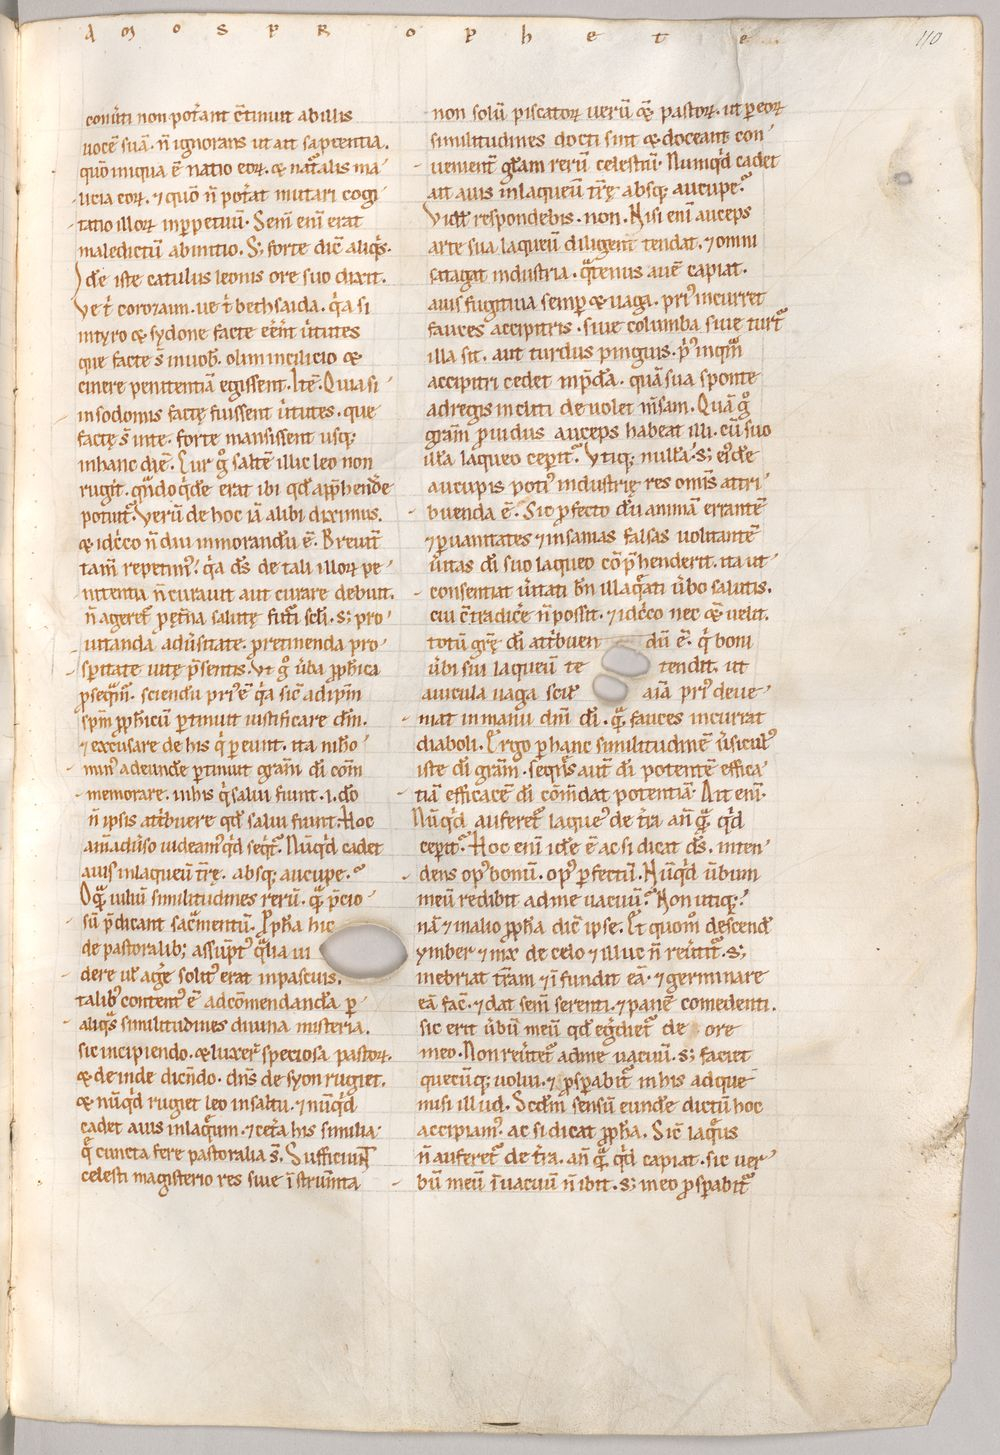 AMOS PROPHETE
110
conũti non pot̃ant c̃tinuit ab illis
uocẽ suã. ñ ignorans ut ait sapientia.
quõ iniqua ẽ natio eoꝝ. & nat᷑alis ma
licia eoꝝ. ⁊ quõ ñ pot̃at mutari cogi
tatio illoꝝ in ꝑpetuũ. Sem̃ enĩ erat
maledictũ ab initio. S; forte dic̃ aliq̃s.
Jd̃e iste catulus leonis ore suo dixit.
Ve t̃ corozaim. ue t̃ bethsaida. q̃a si
in tyro & sydone facte eẽnt ũtutes
que facte s̃ in uob̃. olim in cilicio &
cinere penitentiã egissent. Itẽ. Quia si
in sodomis factę fuissent ũtutes. que
factę s̃ in te. forte mansissent usq;
in hanc diẽ. Cur g̊ saltẽ illic leo non
rugit. qñdoq̃de erat ibi qd̃ app̃henđe
potuit. Verũ de hoc iã alibi diximus.
& idc̃co ñ diu inmorandũ ẽ. Breuit̃
tam̃ repetim᷒. q̃a d̃s de tali illoꝝ pe
nitentia ñ curauit aut curare debuit.
ñ ageret᷑ p ęt̃na salutę futi scl̃i. s; pro
uitanda adũsitate. ꝑtimenda pro
sꝑitate uitę p̃sentis. Vt g̊ ũba ꝓph̃ica
ꝓseq̃m̃. sciendũ pri᷒ ẽ q̃a sic̃ ad ipm̃
spm̃ ꝓph̃icũ ꝑtinuit iustificare dm̃.
⁊ excusare de his q̃ ꝑeunt. ita nih̃o
min᷒ ad eund̃e ꝑtinuit gram̃ di com̃
memorare. in his q̃ salui fiunt. i. do
ñ ipsis atĩbuere qd̃ salui fiunt. Hoc
am̃ adũso uideam᷒ q̃d seq̃t᷑. Nũq̃d cadet
auis in laqueũ tr̃ę. absq; aucupe.
O q̃ᷓ uiliũ similitudines rerũ. q̃ᷓ p̃cio
sũ p̃dicant sac̃mentũ. Ꝓpha hic
de pastoralib; assũpt᷒ q̃lia ui
dere ul̃ ag̃e solit᷒ erat in pascuis.
talib᷒ content᷒ ẽ ad cõmendanda ꝑ
aliq̃s similitudines diuina misteria.
sic incipiendo. & luxer̃ speciosa pastoꝝ.
& deinde dicñdo. dñs de syon rugiet.
& nũq̃d rugiet leo in saltu. ⁊ nũq̃d
cadet auis in laq̃um. ⁊ cet̃a his similia.
q̃ cuncta fere pastoralia s̃. Sufficiunt
celesti magisterio res siue ĩ strum̃ta
non solũ piscatoꝝ uerũ & pastoꝝ. ut ꝑ eoꝝ
similitudines docti sint & doceant con
uenient̃ gr̃am rerũ celestiũ. Nũq̃d cadet
ait auis in laqueũ tr̃ę absq; aucupe.
Vidl̃ respondebis. non. Nisi enĩ auceps
arte sua laqueũ diligent̃ tendat. ⁊ omni
satagat industria. q̃tenus auẽ capiat.
auis fugitiua semp & uaga. pri᷒ incurret
fauces accipitris. siue columba siue turt᷑
illa sit. aut turdus pinguis. p̃᷒ inq̃ᷓ
accipitri cedet in p̃da. quã sua sponte
ad regis incliti deuolet m̃sam. Quã g̊
gram̃ ꝓuidus auceps habeat illi. cũ suo
illa laqueo ceꝑit. Vtiq; nullã. s; ei᷒de
aucupis poti᷒ industrię res om̃is attri
buenda ẽ. Sic ꝓfecto dũ animã errantẽ
⁊ ꝑ uanitates ⁊ insanias falsas uolitantẽ
ũitas di suo laqueo cõp̃henderit. ita ut
consentiat ũitati bñ illaq̃ati ũbo salutis.
cui c̃tradic̃e ñ possit. ⁊ idc̃co nec & uelit.
totũ gr̃ę di atĩbuen dũ ẽ. q̃ boni
ũbi sui laqueũ te tendit. ut
auicula uaga scił aĩa pri᷒ deue
niat in manũ dñi di. q̃ᷓ fauces incurrat
diaboli. Ergo ꝑ hanc similitudinẽ ũsicul᷒
iste di gram̃. seq̃ns aut̃ di potentẽ effica
tiã efficacẽ di cõm̃dat potentiã. Ait enĩ.
Nũq̃d auferet᷑ laque᷒ de t̃ra añ q̃ᷓ q̃d
ceꝑit. Hoc enĩ id̃e ẽ ac si dicat d̃s. inten
dens op᷒ bonũ. op᷒ ꝑfectũ. Nũq̃d ũbum
meũ redibit ad me uacuũ. Non utiq;.
nã ⁊ in alio ꝓpha dic̃ ipse. Et quom̊ descend̃
ymber ⁊ nix de celo ⁊ illuc ñ reũtit᷑. s;
inebriat t̃ram ⁊ ĩfundit eã. ⁊ germinare
eã fac̃. ⁊ dat sem̃ serenti. ⁊ panẽ comedenti.
sic erit ũbũ meũ qd̃ eg̃diet᷑ de ore
meo. Non reũtet᷑ ad me uacuũ. s; faciet
quecũq; uolui. ⁊ ꝓsꝑabit᷑ in his ad que
misi illud. Scd̃m sensũ eund̃e dictũ hoc
accipiam᷒. ac si dicat ꝓpha. Sic̃ laq̃us
ñ auferet᷑ de t̃ra. añ q̃ᷓ q̃d capiat. sic uer
bũ meũ ĩ uacuũ ñ ibit. s; in eo ꝓsꝑabit᷑